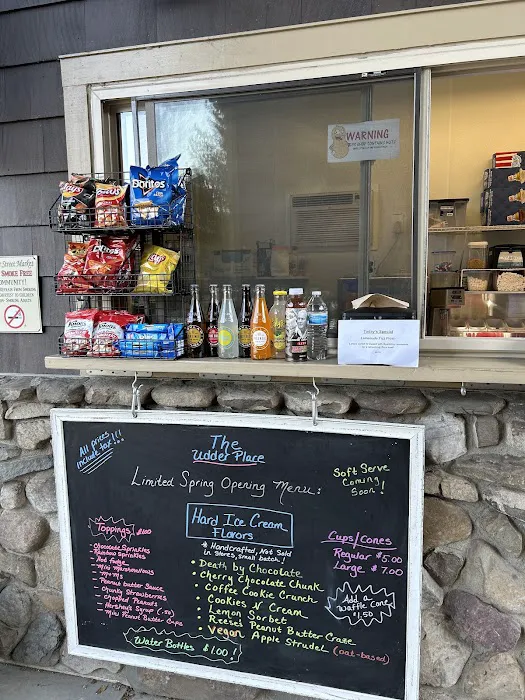 WARNING
Doritos
Lay's
Street Market
SMOKE FREE
COMMUNITY!
The
Udder Place
All prices
include tax!!!
Limited Spring Opening Menu:
Soft Serve
Coming
Soon!
Hard Ice Cream
Flavors
* Handcrafted, Not Sold
in Stores, small batch!
• Death by Chocolate
• Cherry Chocolate Chunk
• Coffee Cookie Crunch
• Cookies N Cream
• Lemon Sorbet
• Reeses Peanut Butter Craze
• Vegan Apple Strudel (oat-based)
Toppings $1.00
- Chocolate Sprinkles
- Rainbow Sprinkles
- Hot fudge
- Mini Marshmallows
- M+M's
- Peanut butter Sauce
- Chunky Strawberries
- Chopped Peanuts
- Hershey's Syrup (.50)
- Mini Peanut Butter Cups
Water Bottles $1.00!
Cups/Cones
Regular $5.00
Large $7.00
Add a
Waffle Cone
$1.50